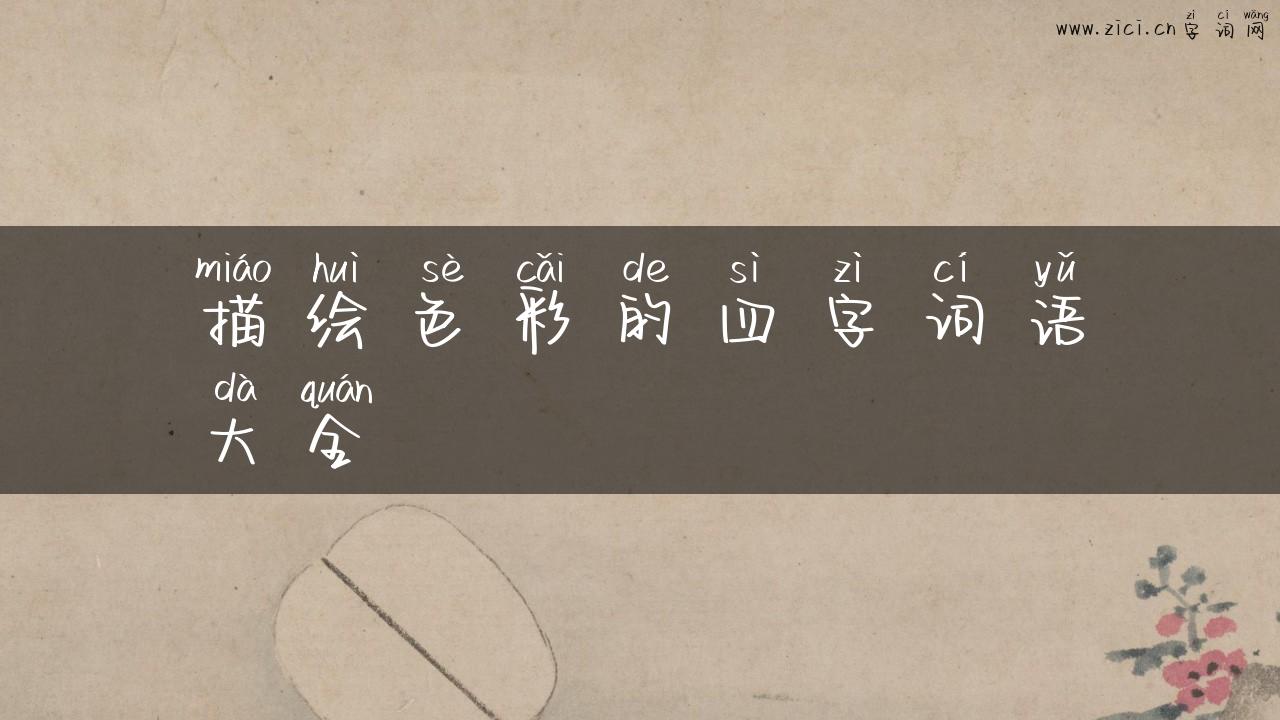 zì cí wǎng
www.zici.cn 字词网
miáo huì sè cǎi de sì zì cí yǔ
描绘色彩的四字词语
dà quán
大全